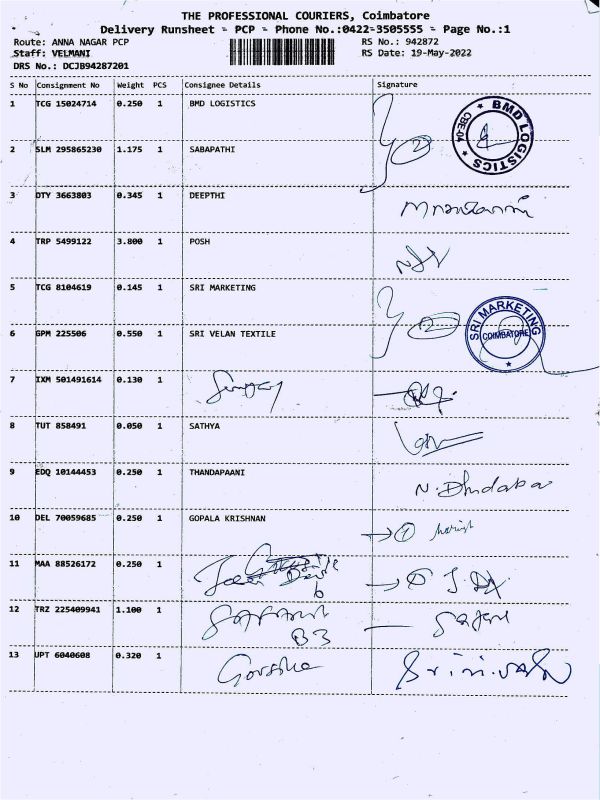 THE PROFESSIONAL COURIERS, Coimbatore
Delivery Runsheet - PCP - Phone No.:0422-3505555 - Page No.:1
Route: ANNA NAGAR PCP RS No.: 942872
Staff: VELMANI RS Date: 19-May-2022
DRS No.: DCJB94287201
S No Consignment No Weight PCS Consignee Details Signature
1 TCG 15024714 0.250 1 BMD LOGISTICS
BMD LOGISTICS
CBE-04
2 SLM 295865230 1.175 1 SABAPATHI
3 DTY 3663803 0.345 1 DEEPTHI
4 TRP 5499122 3.800 1 POSH
5 TCG 8104619 0.145 1 SRI MARKETING
SRI MARKETING
COIMBATORE
6 GPM 225506 0.550 1 SRI VELAN TEXTILE
7 IXM 501491614 0.130 1
8 TUT 858491 0.050 1 SATHYA
9 EDQ 10144453 0.250 1 THANDAPAANI
10 DEL 70059685 0.250 1 GOPALA KRISHNAN
11 MAA 88526172 0.250 1
12 TRZ 225409941 1.100 1
13 UPT 6040608 0.320 1